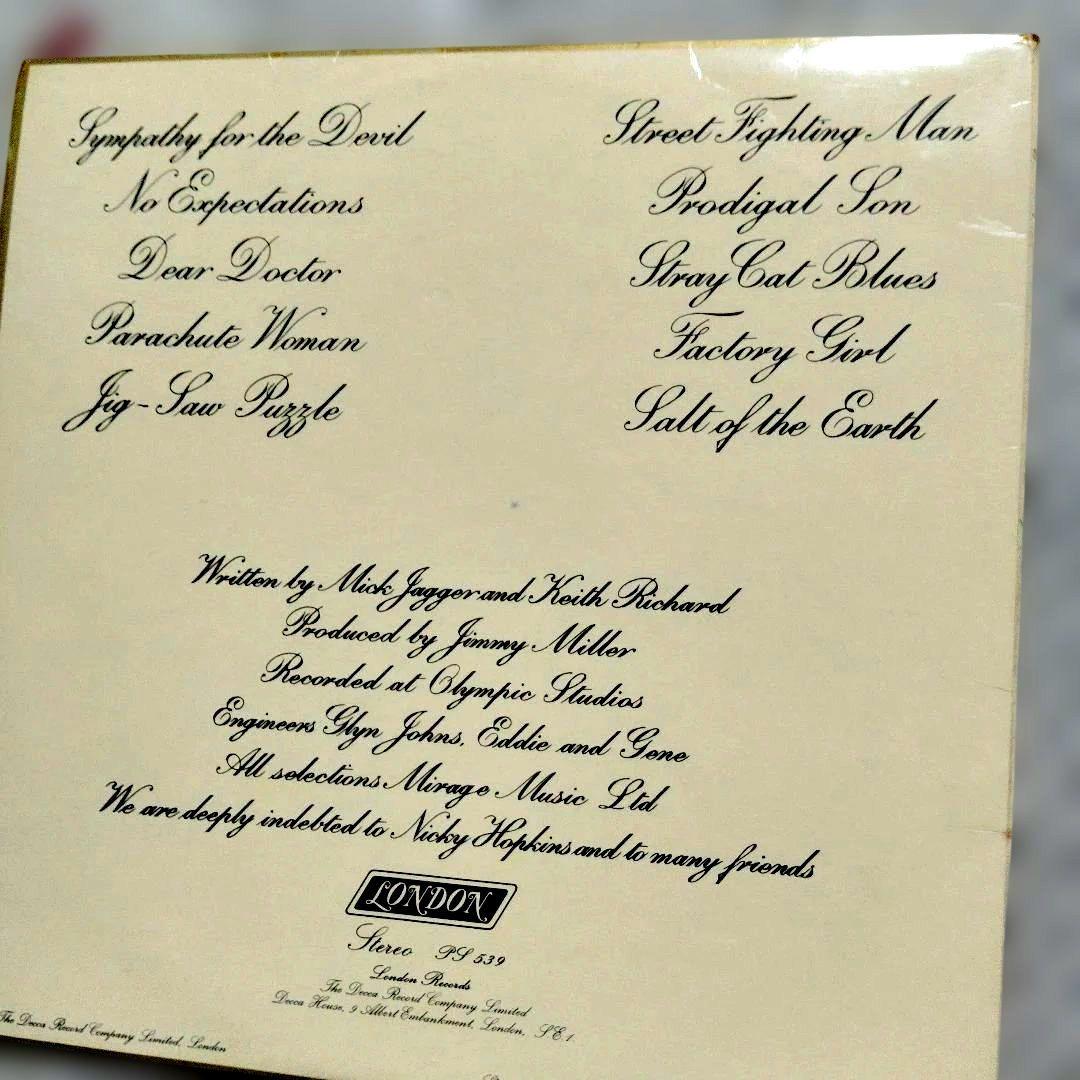 Sympathy for the Devil
No Expectations
Dear Doctor
Parachute Woman
Jig-Saw Puzzle
Street Fighting Man
Prodigal Son
Stray Cat Blues
Factory Girl
Salt of the Earth
Written by Mick Jagger and Keith Richard
Produced by Jimmy Miller
Recorded at Olympic Studios
Engineers Glyn Johns, Eddie and Gene
All selections Mirage Music Ltd
We are deeply indebted to Nicky Hopkins and to many friends
LONDON
Stereo PS 539
London Records
The Decca Record Company Limited
Decca House, 9 Albert Embankment, London, S.E.1.
The Decca Record Company Limited, London